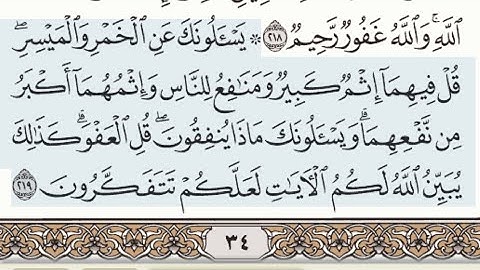 ٱللَّهِۚ وَٱللَّهُ غَفُورٌ رَّحِيمٌ ٢١٨ ۞ يَسْـَٔلُونَكَ عَنِ ٱلْخَمْرِ وَٱلْمَيْسِرِۖ
قُلْ فِيهِمَآ إِثْمٌ كَبِيرٌ وَمَنَـٰفِعُ لِلنَّاسِ وَإِثْمُهُمَآ أَكْبَرُ
مِن نَّفْعِهِمَاۗ وَيَسْـَٔلُونَكَ مَاذَا يُنفِقُونَۖ قُلِ ٱلْعَفْوَۗ كَذَٰلِكَ
يُبَيِّنُ ٱللَّهُ لَكُمُ ٱلْـَٔايَـٰتِ لَعَلَّكُمْ تَتَفَكَّرُونَ ٢١٩
٣٤